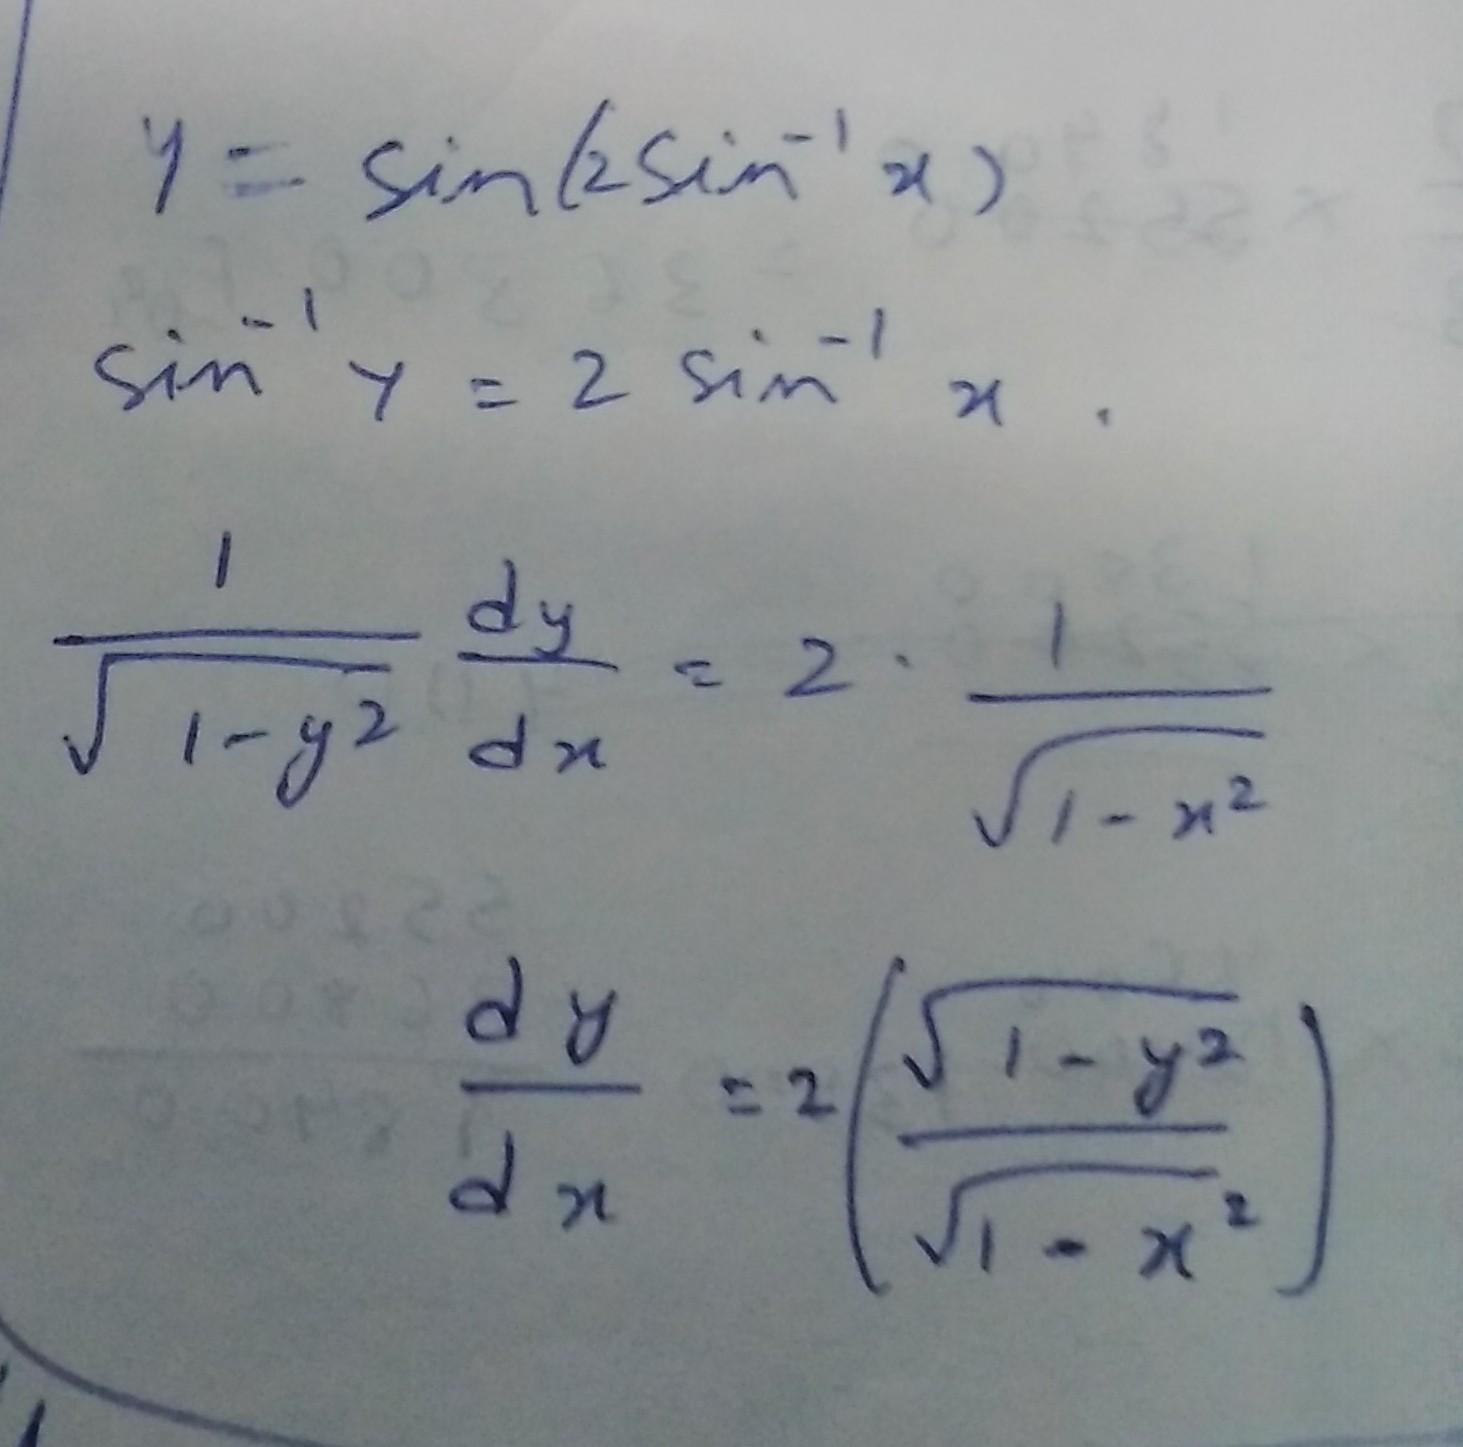 y = sin(2 sin⁻¹ x)
sin⁻¹ y = 2 sin⁻¹ x .
1/√(1-y²) dy/dx = 2 · 1/√(1-x²)
dy/dx = 2(√(1-y²)/√(1-x²))